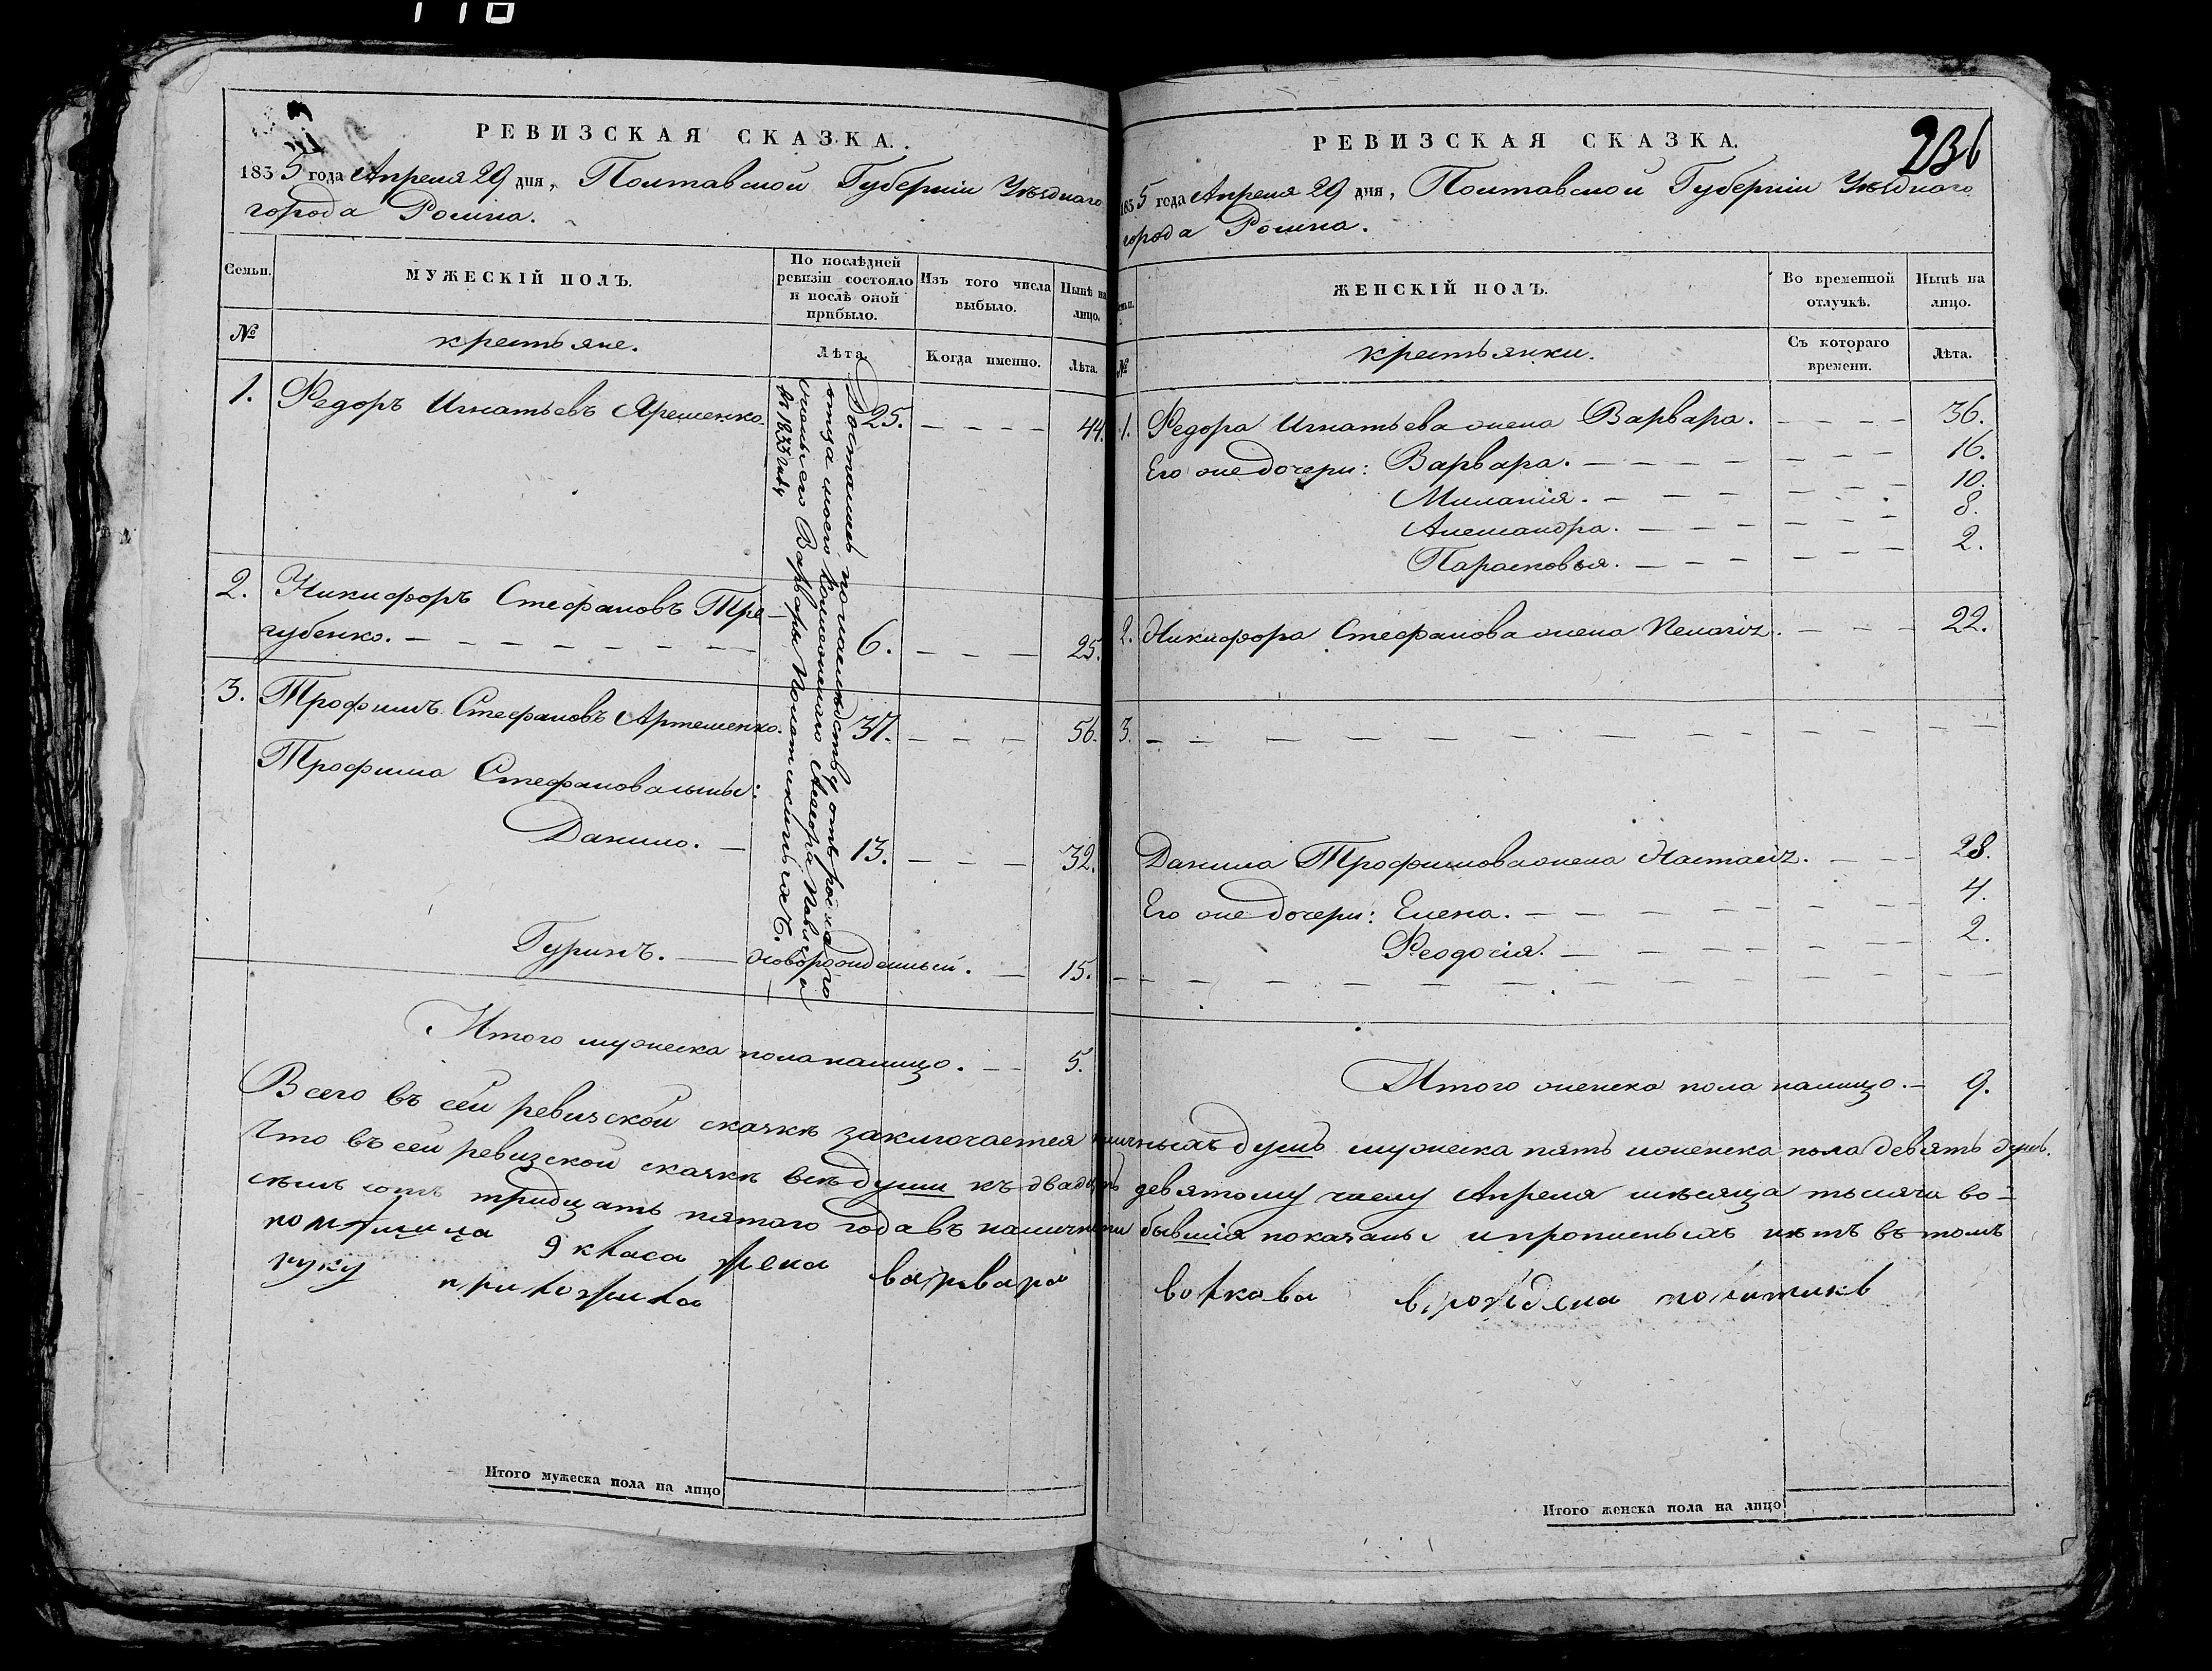 118
РЕВИЗСКАЯ СКАЗКА.
1835 года Апреля 29 дня, Полтавской Губернии Уѣзднаго
города Ромна.
Семьи.
МУЖЕСКІЙ ПОЛЪ.
По послѣдней ревизіи состояло и послѣ оной прибыло.
Изъ того числа выбыло.
Нынѣ на лицо.
№
крестьяне.
Лѣта.
Когда именно.
Лѣта.
1. Федоръ Игнатьевъ Ярешенко. 25. — — — — 44.
2. Никифоръ Стефановъ Тре-
губенко. — — — — — — — 6. — — — 25.
3. Трофимъ Стефановъ Артеменко. 37. — — — 56.
Трофима Стефанова сыны:
Данило. — 13. — — — 32.
Гуринъ. — новорожденный. — 15.
Досталась по наслѣдству отъ роднаго
отца моего Колежскаго
жены его Варвары
въ 1833 году
Итого мужеска пола налицо. — — 5.
РЕВИЗСКАЯ СКАЗКА.
236
1835 года Апреля 29 дня, Полтавской Губернии Уѣзднаго
города Ромна.
Семьи.
ЖЕНСКІЙ ПОЛЪ.
Во временной отлучкѣ.
Нынѣ на лицо.
№
крестьянки.
Съ котораго времени.
Лѣта.
1. Федора Игнатьева жена Варвара. — — — — 36.
Его же дочери: Варвара. — — — — — — — — 16.
Миланія. — — — — — — — 10.
Александра. — — — — — — — 8.
Парасковья. — — — — — — — 2.
2. Никифора Стефанова жена Пелагія. — — — 22.
3. — — — — — — — — — — — —
Данила Трофимова жена Настасія. — — — 28.
Его же дочери: Елена. — — — — — — — — 4.
Феодосія. — — — — — — — 2.
— — — — — — — — — — — —
Итого женска пола налицо. — 9.
Всего въ сей ревизской сказкѣ заключается наличныхъ душъ мужеска пять и женска пола девять душъ.
Что въ сей ревизской сказкѣ всѣ души къ двадцать девятому числу Апреля мѣсяца тысяча во-
семь сотъ тридцать пятого года въ наличности бывшія показаны и прописныхъ нѣтъ въ томъ
помѣщица 9 класа жена варвара волкова
руку приложила
Итого мужеска пола на лицо
Итого женска пола на лицо